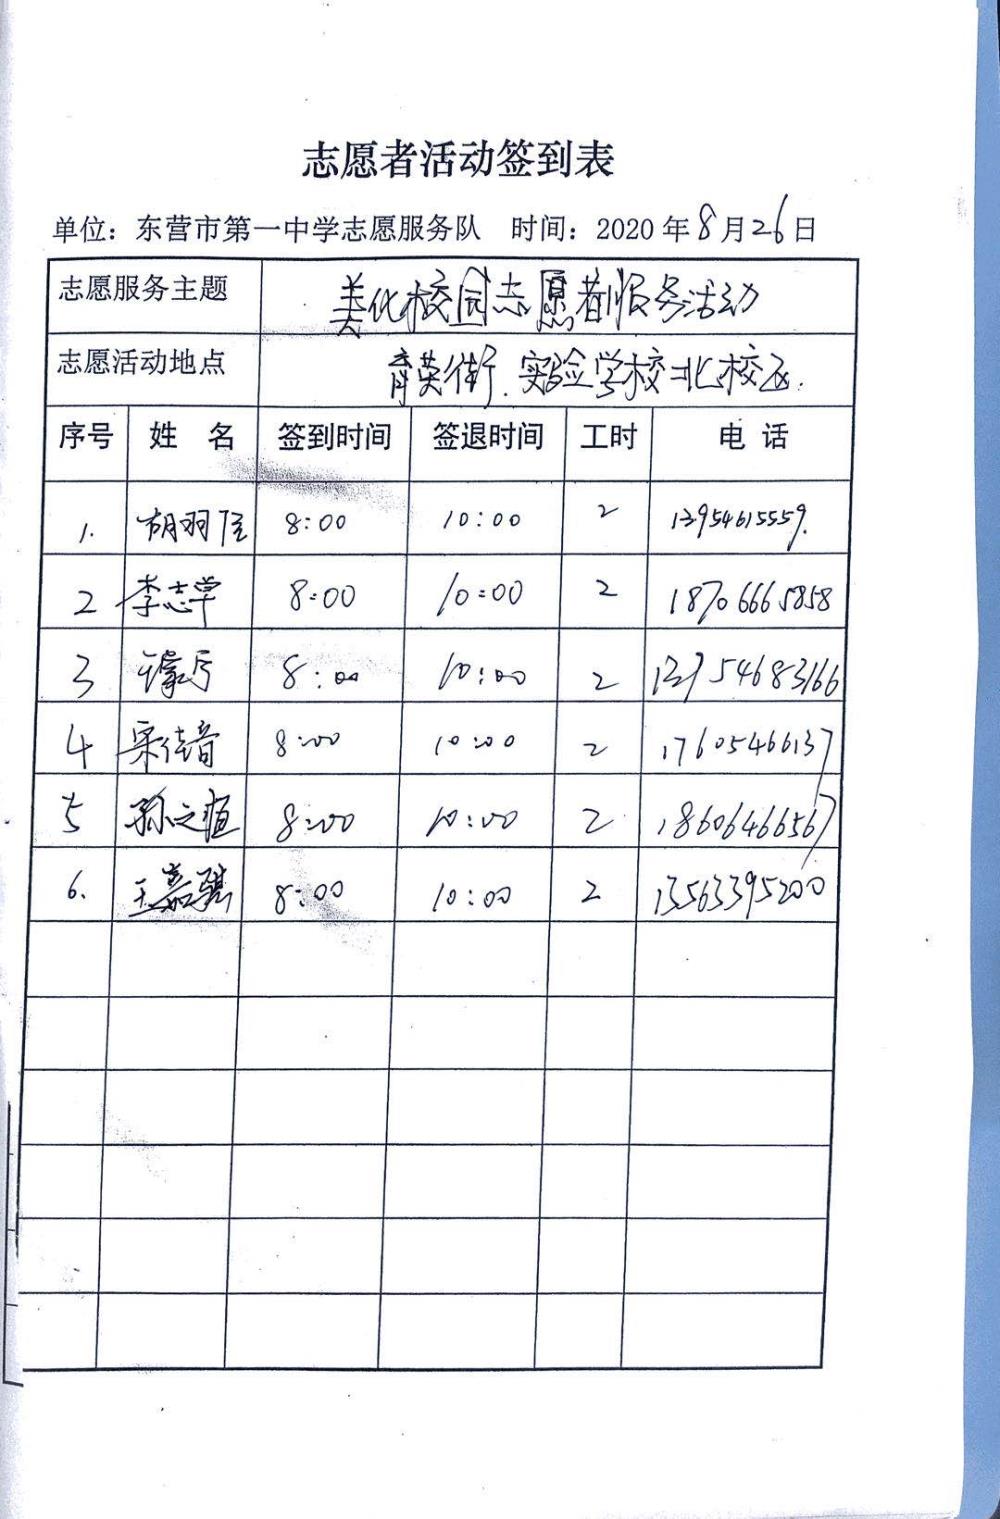 志愿者活动签到表
单位：东营市第一中学志愿服务队 时间：2020年8月26日
志愿服务主题 美化校园志愿者服务活动
志愿活动地点 育英街.实验学校北校区.
序号 姓 名 签到时间 签退时间 工时 电 话
1. 胡羽 8:00 10:00 2 13954615559.
2 李志学 8:00 10:00 2 18706665858
3 8:00 10:00 2 13954683166
4 宋佳音 8:00 10:00 2 17605466137
5 孙之恒 8:00 10:00 2 18606466567
6. 王嘉骐 8:00 10:00 2 13563395200